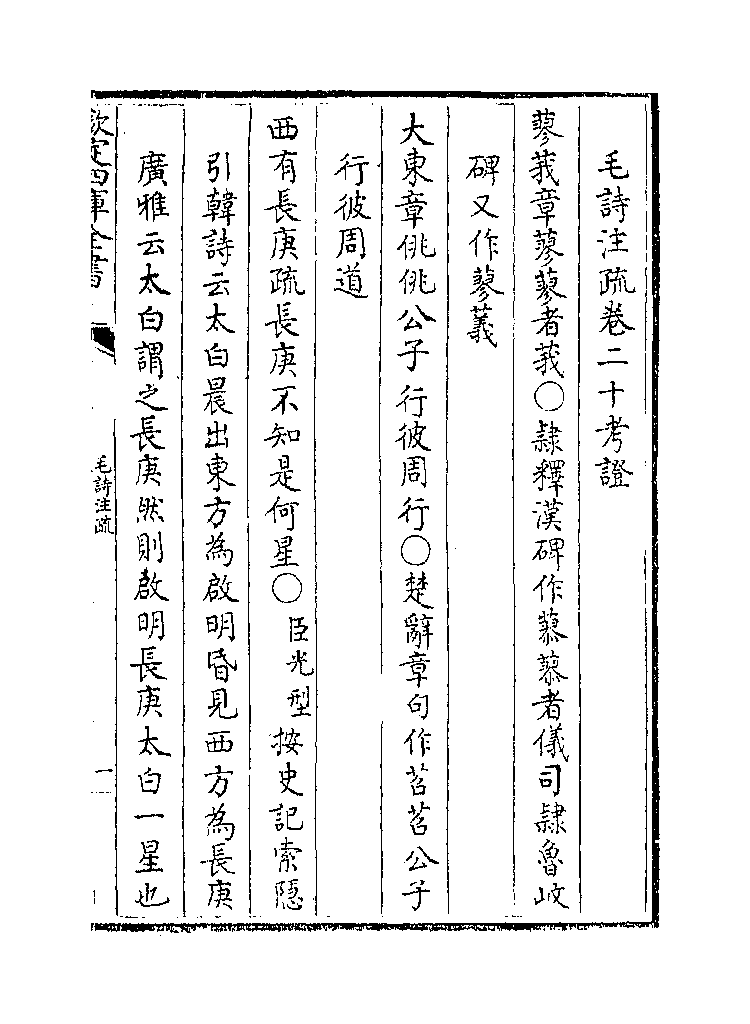 毛詩注疏卷二十考證
蓼莪章蓼蓼者莪○隸釋漢碑作蓼蓼者儀司隸魯峻
碑又作蓼義
大東章佻佻公子行彼周行○楚辭章句作苕苕公子
行彼周道
西有長庚疏長庚不知是何星○臣光型按史記索隱
引韓詩云太白晨出東方為啟明昏見西方為長庚
廣雅云太白謂之長庚然則啟明長庚太白一星也
欽定四庫全書
毛詩注疏
一